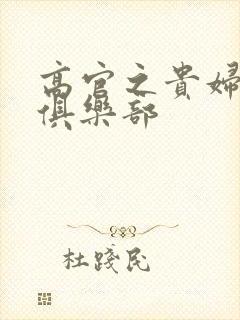 高官之貴婦
俱樂部
杜踐民